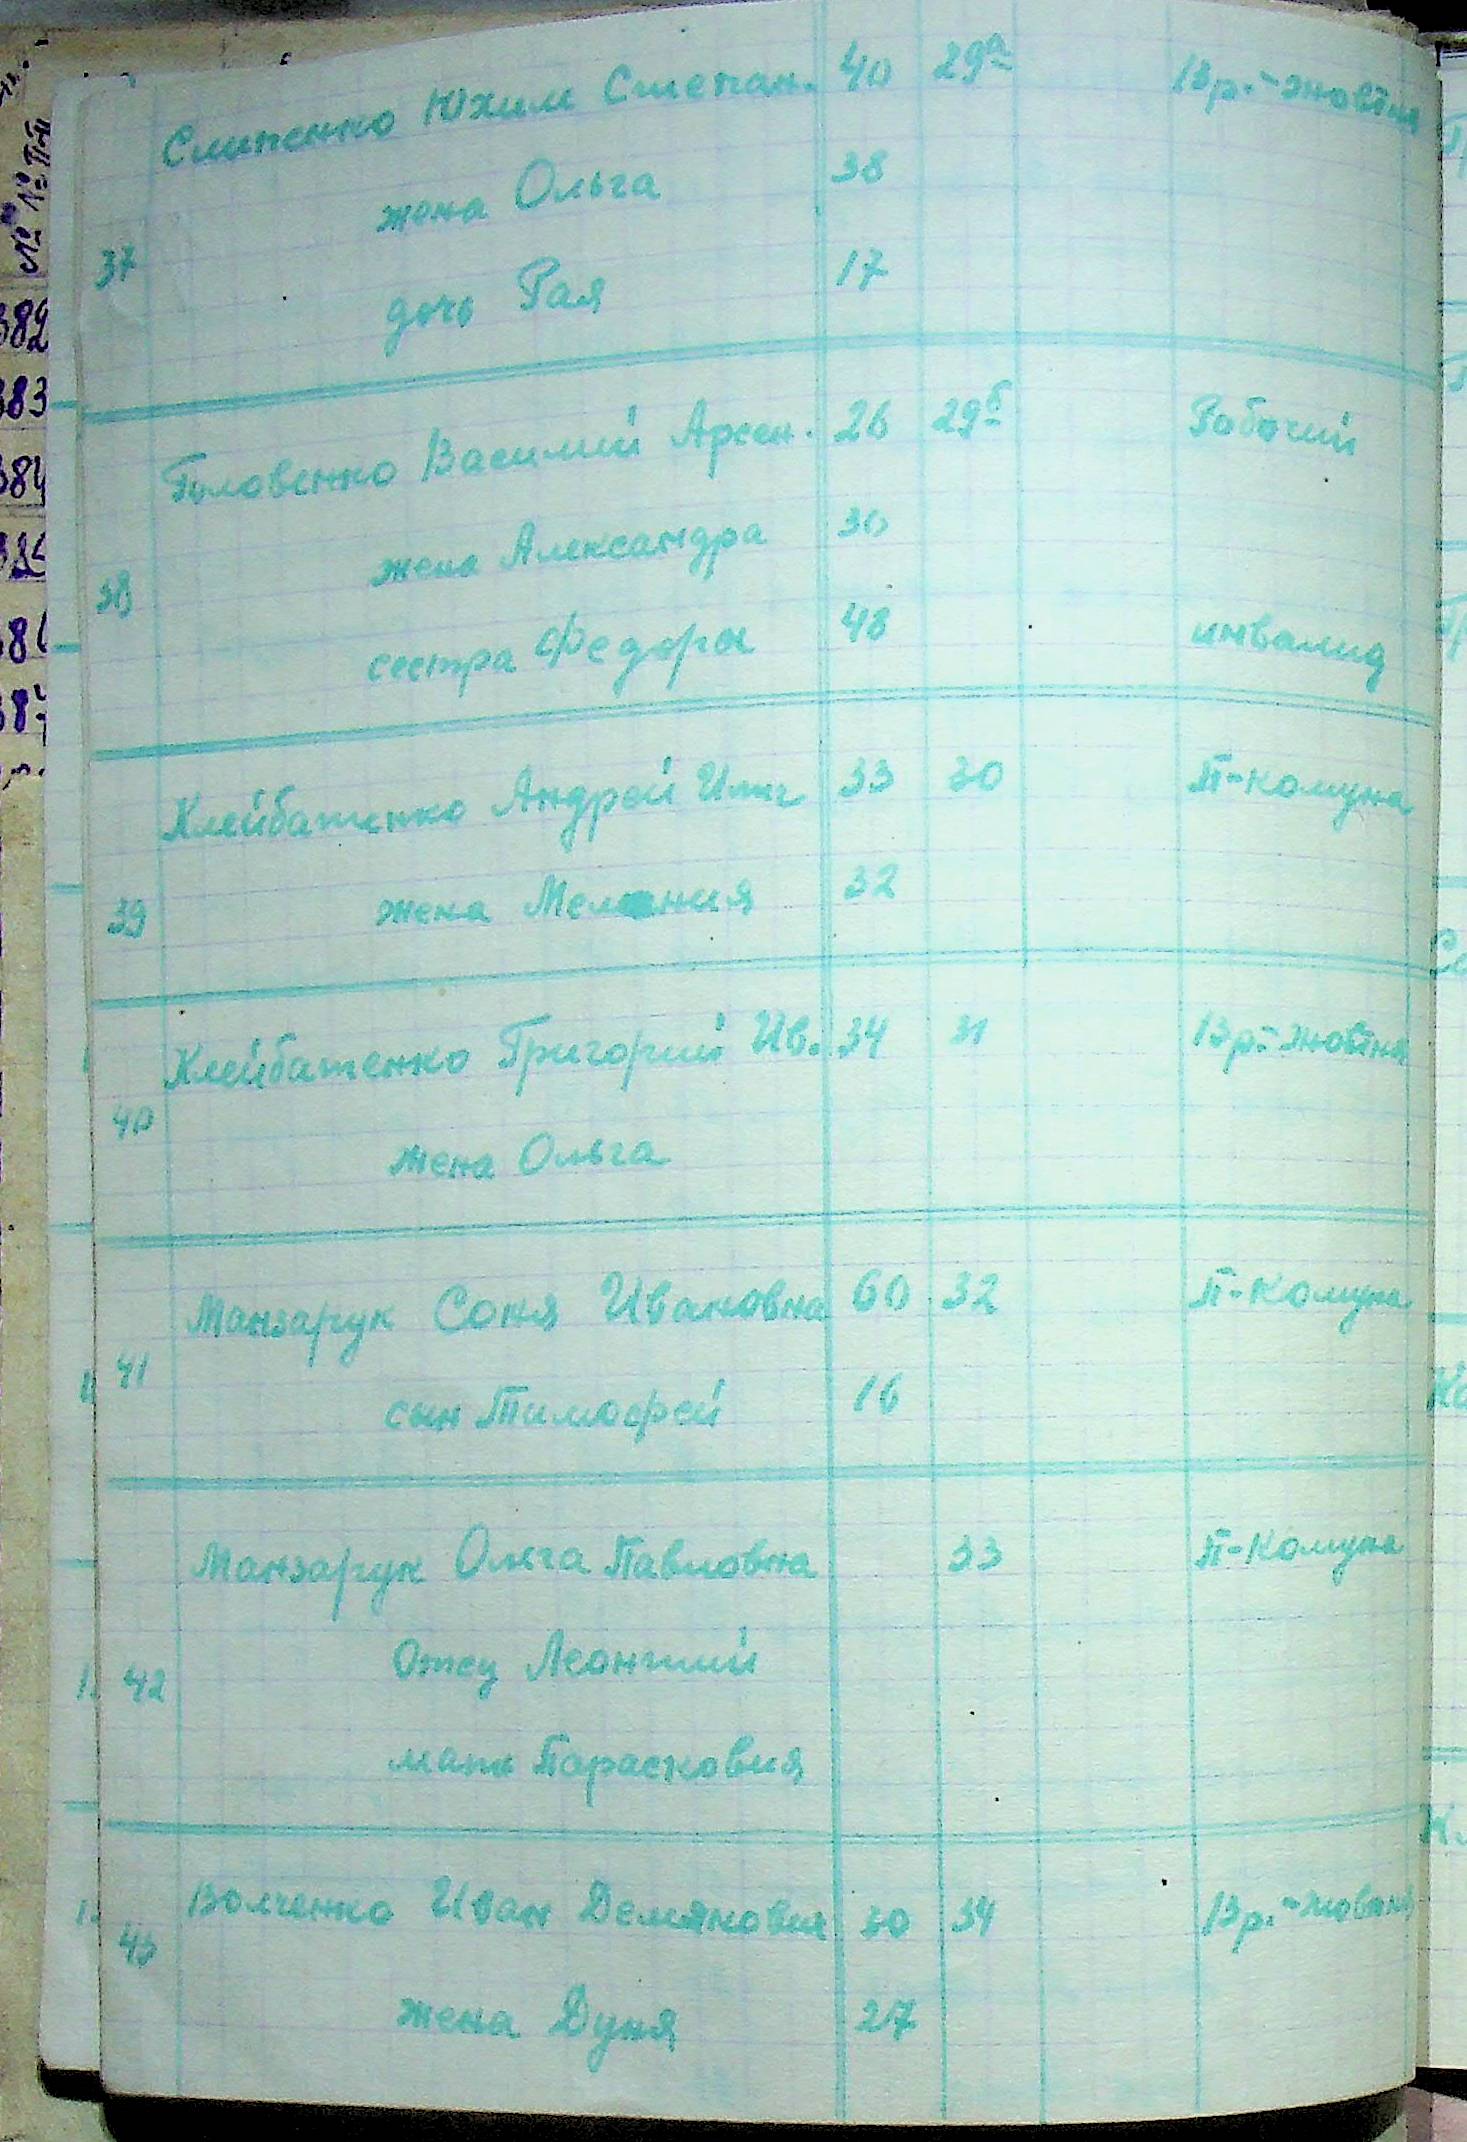 Слипенко Юхим Степан. 40 29а 13р.-Жовтня
жена Ольга 38
37
дочь Рая 17
Головенко Василий Арсен. 26 29б Рабочий
жена Александра 30
38
сестра Федора 48 инвалид
Клейбатенко Андрей Ильич 33 30 П-комуна
39 жена Мелания 32
Клейбатенко Григорий Ив. 34 31 13р.-Жовтня
40
жена Ольга
Манзарук Соня Ивановна 60 32 П-Комуна
41
сын Тимофей 16
Манзарук Ольга Павловна 33 П-Комуна
Отец Леонтий
42
мать Парасковия
Волченко Иван Демянович 30 34 13р.-Жовтня
43
жена Дуня 27
№№ П-П
382
383
384
385
386
387